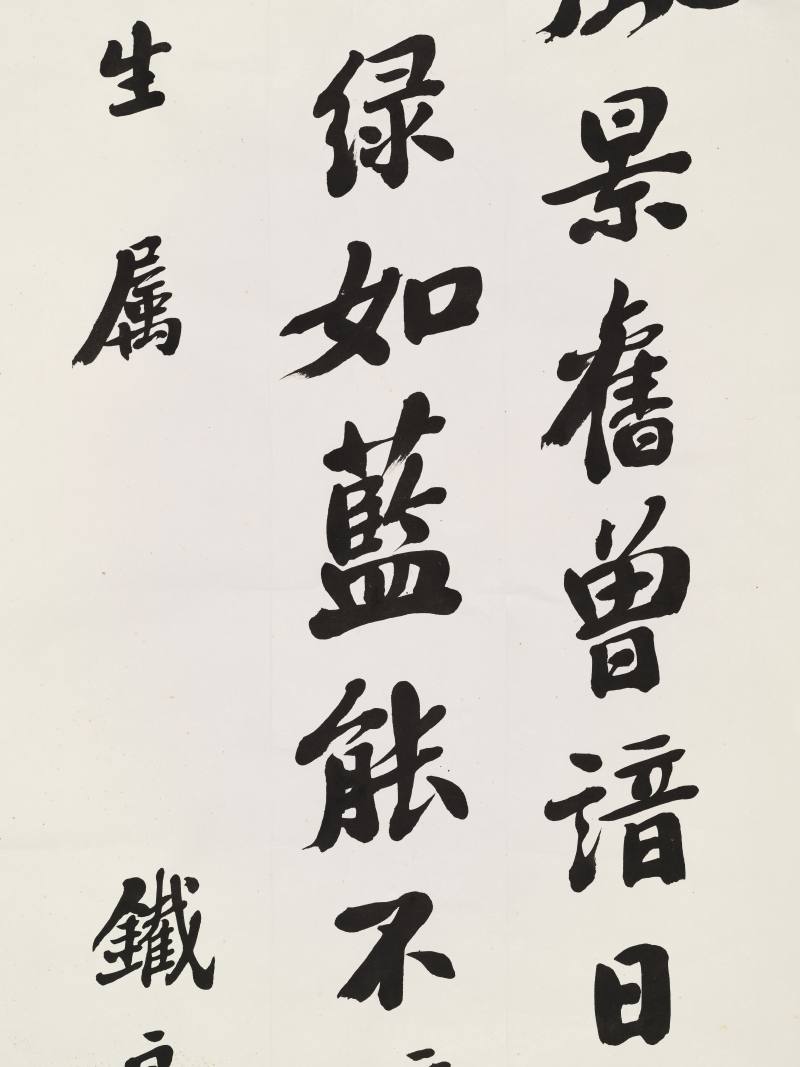 景舊曾諳日
绿如藍能不
生属
鐵